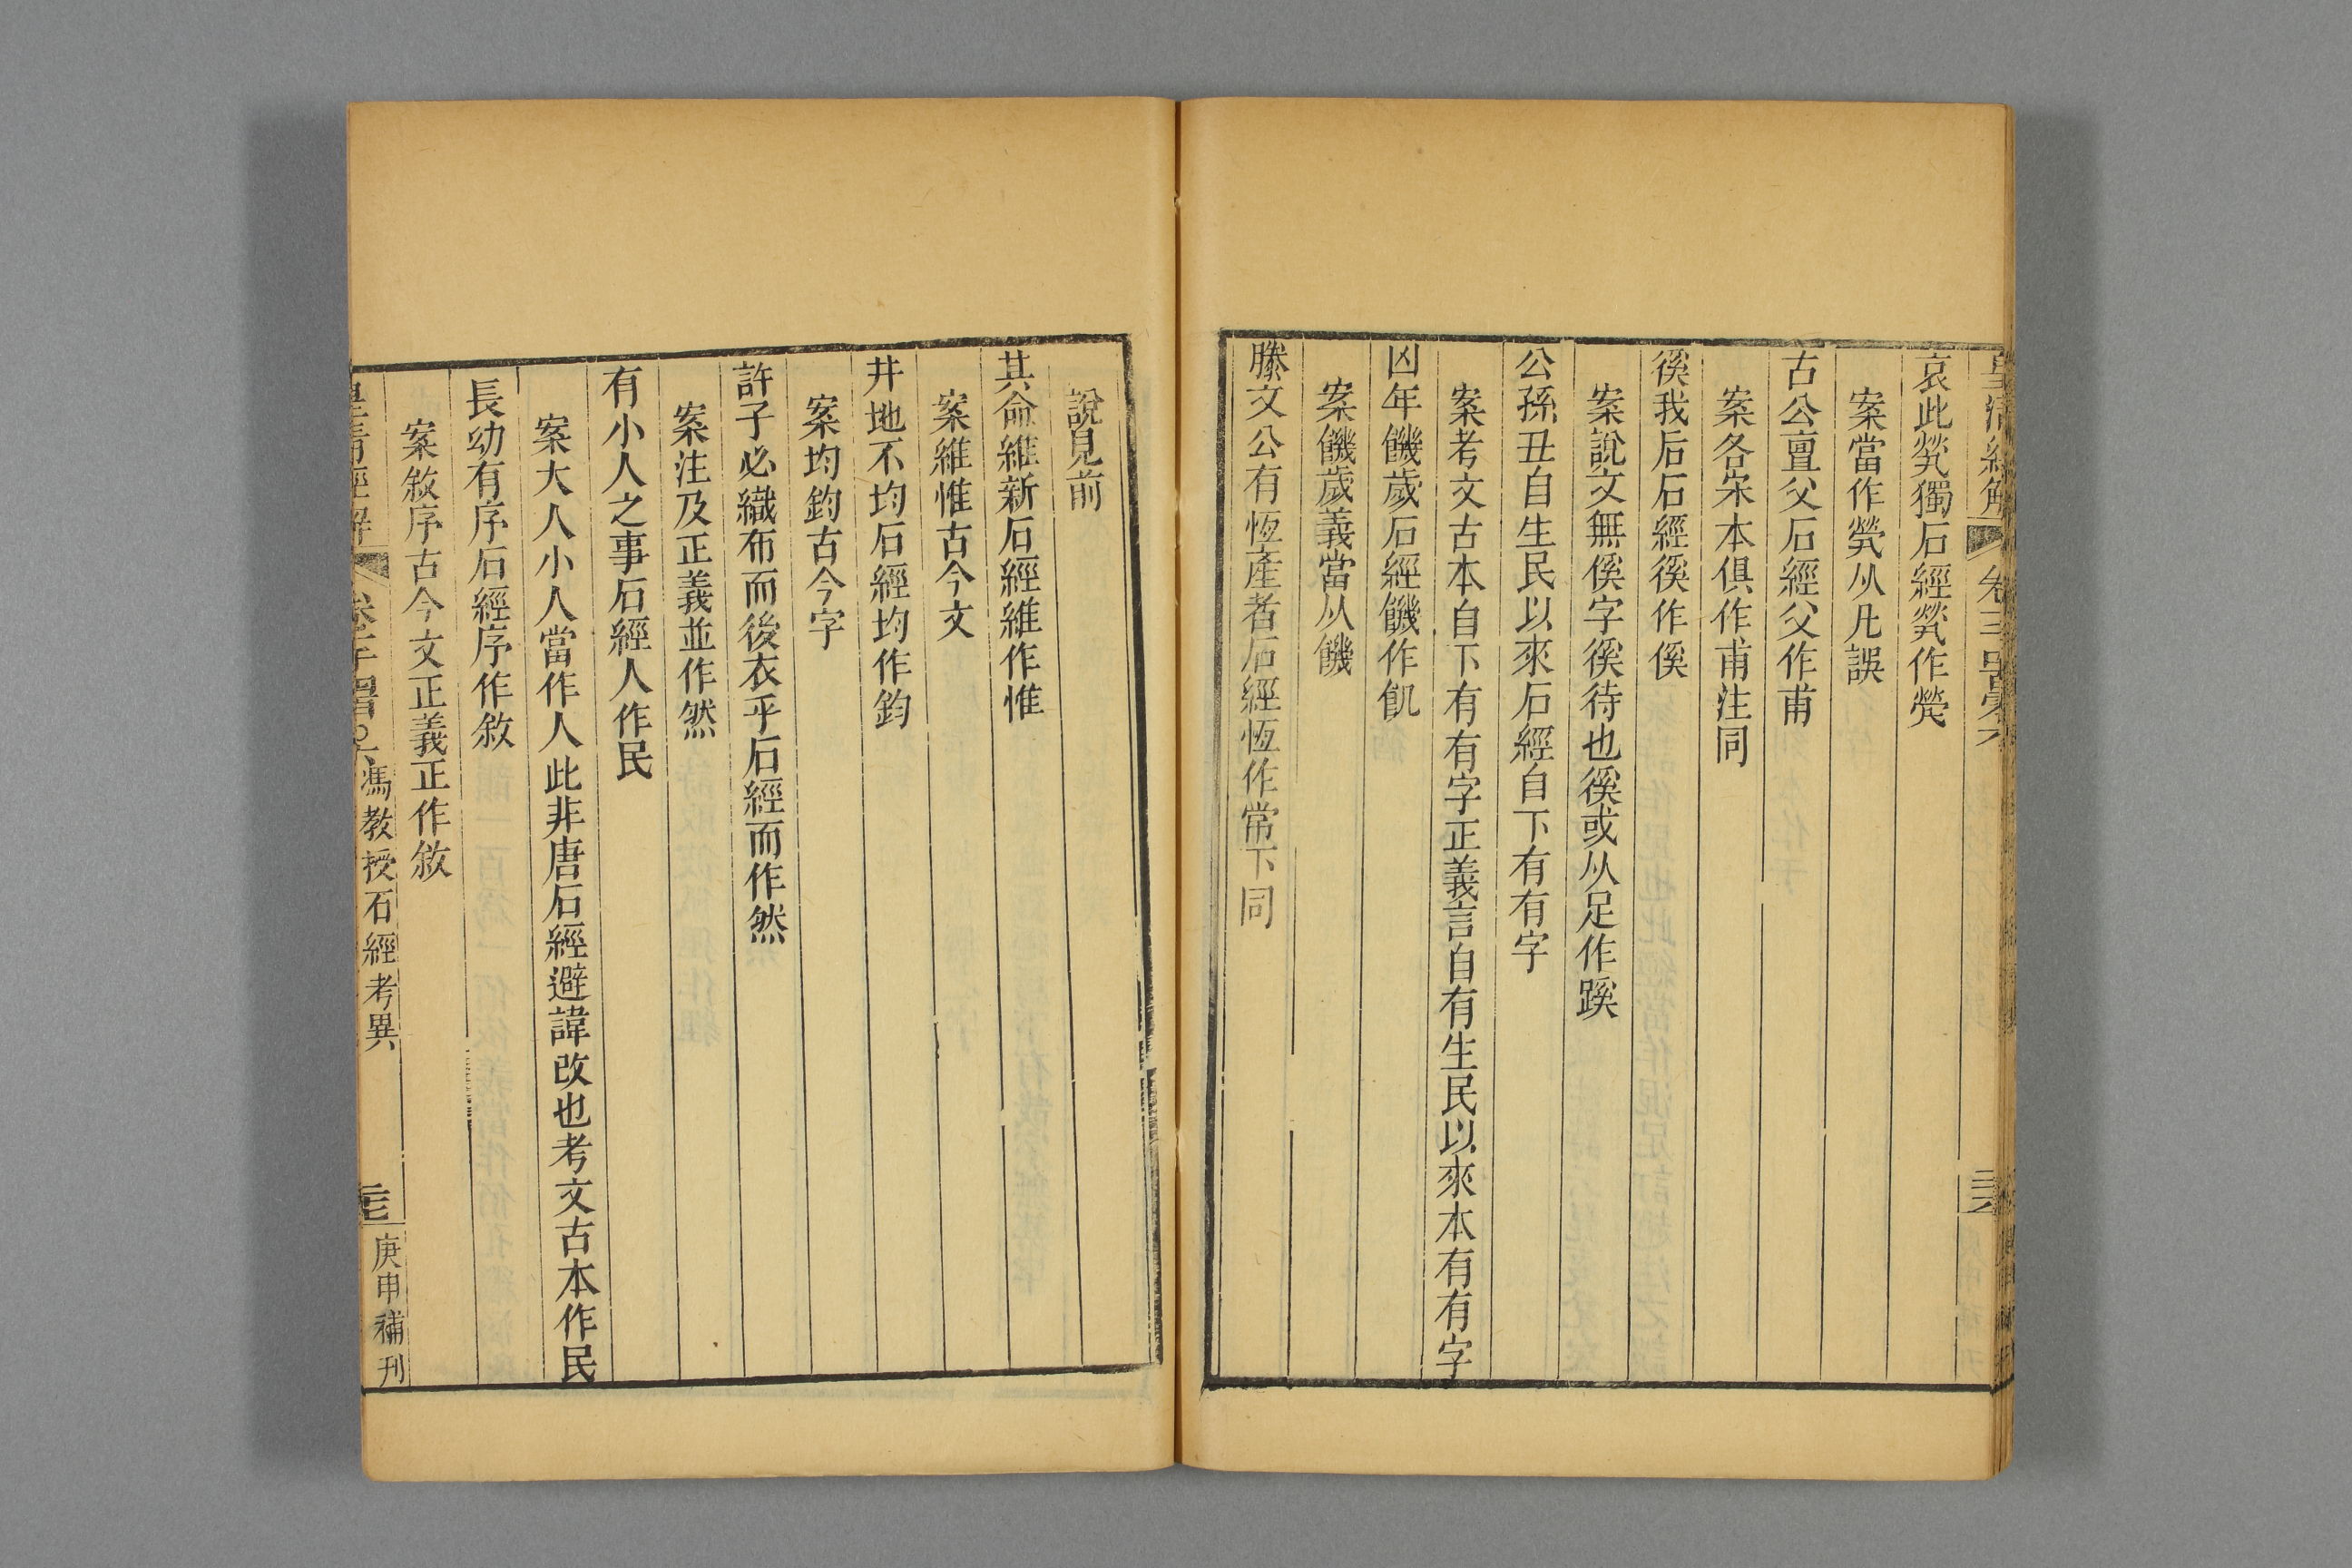 皇清經解
哀此煢獨石經煢作㷀
案當作煢从凡誤
古公亶父石經父作甫
案各宋本俱作甫注同
徯我后石經徯作傒
案說文無傒字徯待也徯或从足作蹊
公孫丑自生民以來石經自下有有字
案考文古本自下有有字正義言自有生民以來本有有字
凶年饑歲石經饑作飢
案饑歲義當从饑
滕文公有恆產者石經恆作常下同
說見前
其命維新石經維作惟
案維惟古今文
井地不均石經均作鈞
案均鈞古今字
許子必織布而後衣乎石經而作然
案注及正義並作然
有小人之事石經人作民
案大人小人當作人此非唐石經避諱改也考文古本作民
長幼有序石經序作敘
案敘序古今文正義正作敘
皇清經解
馮教授石經考異
庚申補刊